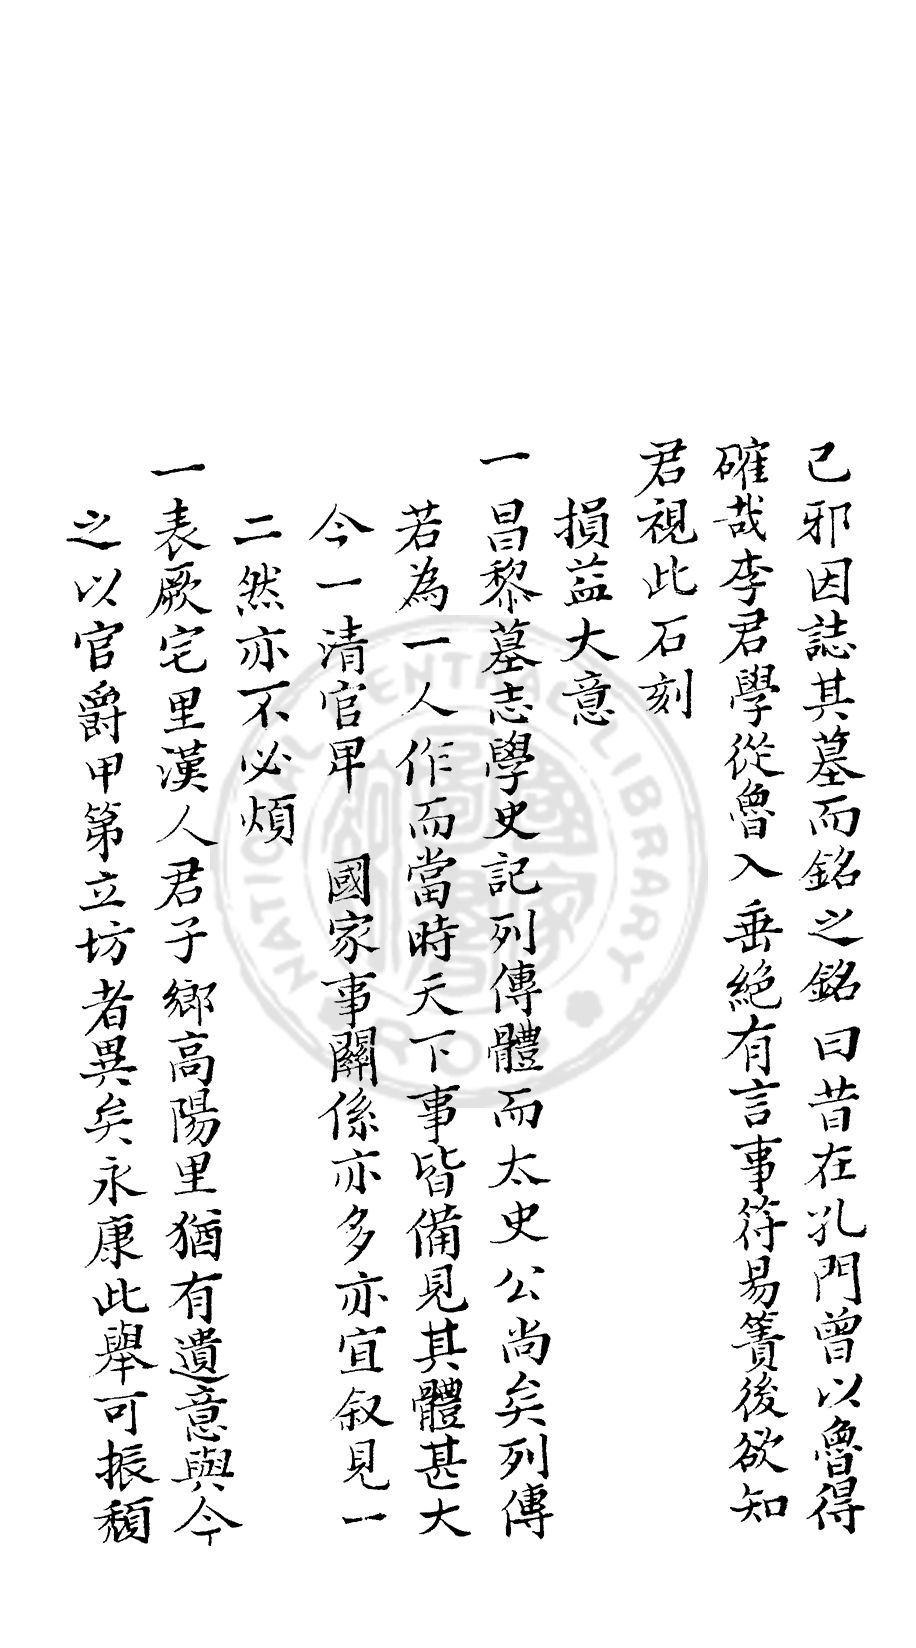 已邪因誌其墓而銘之銘曰昔在孔門曾以魯得
確哉李君學從魯入垂絕有言事符易簀後欲知
君視此石刻
損益大意
一昌黎墓志學史記列傳體而太史公尚矣列傳
若為一人作而當時天下事皆備見其體甚大
今一清官早 國家事關係亦多亦宜叙見一
二然亦不必煩
一表厥宅里漢人君子鄉高陽里猶有遺意與今
之以官爵甲第立坊者異矣永康此舉可振頹
NATIONAL CENTRAL LIBRARY
R.O.C.